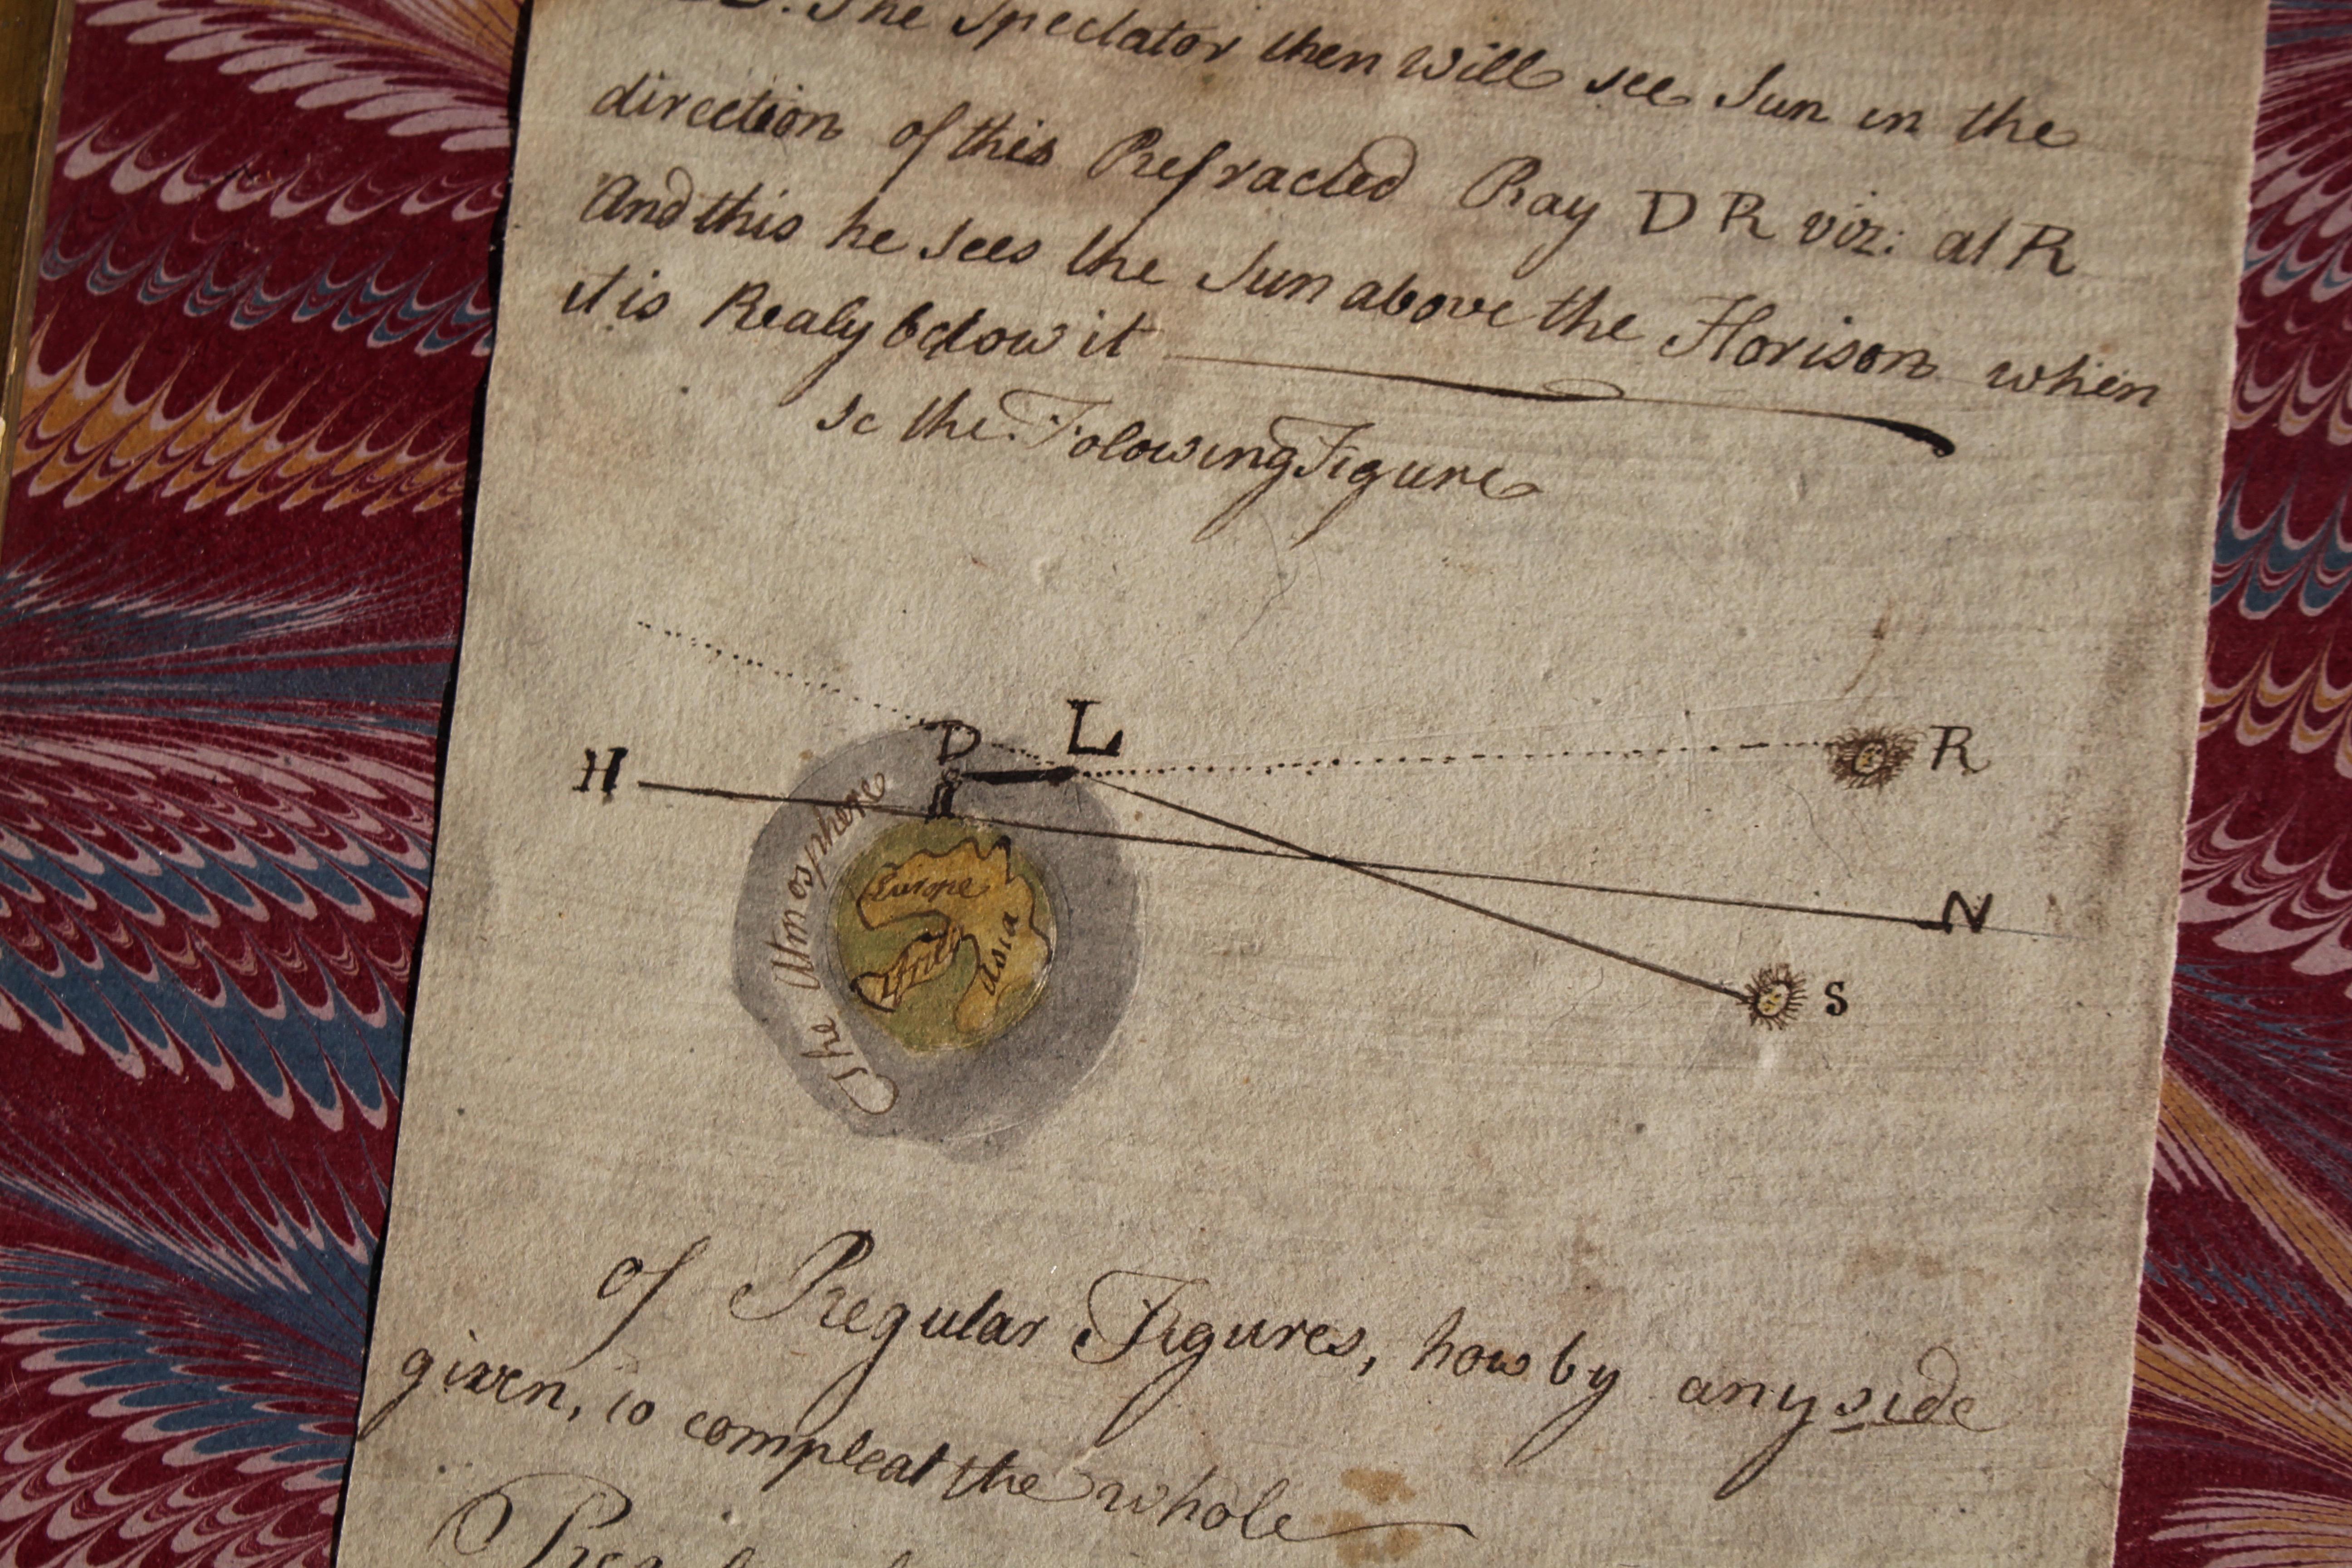 The Spectator then will see Sun in the
direction of this Refracted Ray D R viz: at R
And this he sees the Sun above the Horison when
it is Realy below it
Se the Folowing Figure
D L
H R
The Atmosphere
Europe
Asia
N
S
of Regular Figures, how by any side
given, to compleat the whole